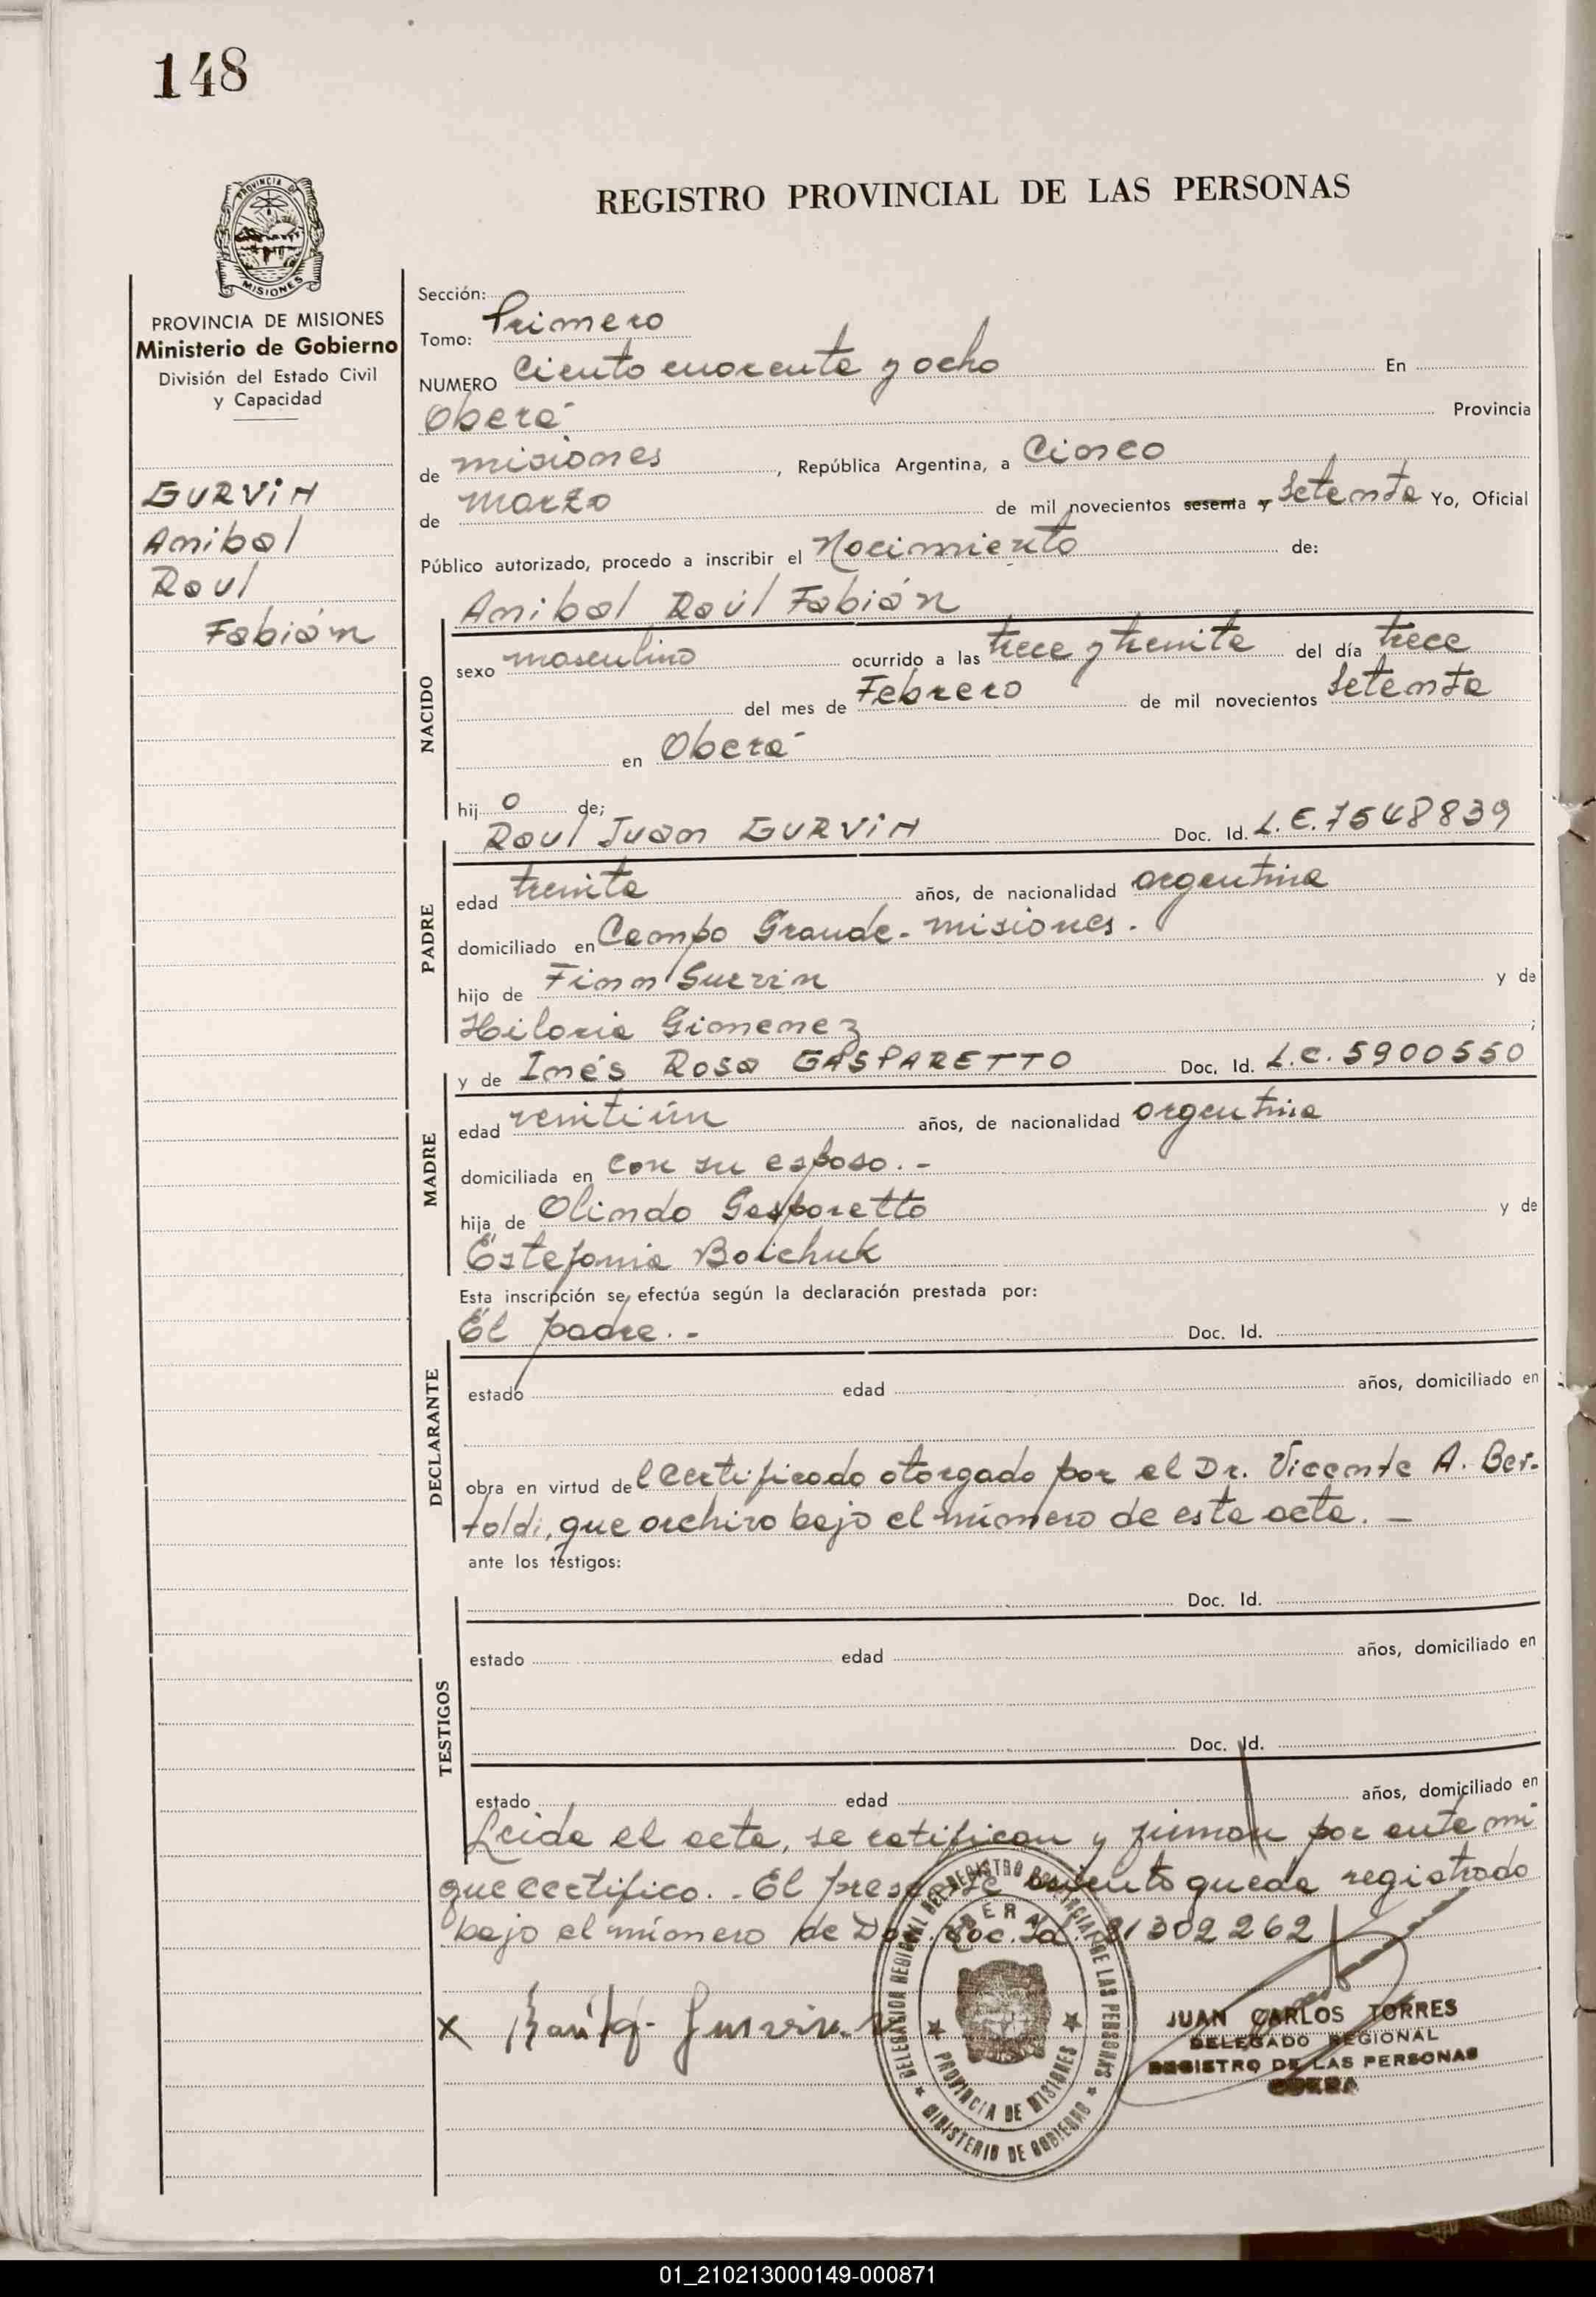 148
PROVINCIA DE
MISIONES
REGISTRO PROVINCIAL DE LAS PERSONAS
PROVINCIA DE MISIONES
Ministerio de Gobierno
División del Estado Civil
y Capacidad
GURVIN
Anibal
Raul
Fabián
Sección:
Tomo: Primero
NUMERO Ciento cuarenta y ocho En
Oberá Provincia
de misiones, República Argentina, a Cinco
de marzo de mil novecientos sesenta y setenta Yo, Oficial
Público autorizado, procedo a inscribir el Nacimiento de:
Anibal Raúl Fabián
NACIDO
sexo masculino ocurrido a las trece y treinta del día trece
del mes de Febrero de mil novecientos setenta
en Oberá
hij o de;
PADRE
Raul Juan GURVIN Doc. Id. L.E. 7548839
edad treinta años, de nacionalidad argentina
domiciliado en Campo Grande - misiones.
hijo de Finn Gurvin y de
Hilaria Gimenez ;
MADRE
y de Inés Rosa GASPARETTO Doc. Id. L.C. 5900550
edad veintiún años, de nacionalidad argentina
domiciliada en con su esposo. -
hija de Olindo Gasparetto y de
Estefania Boichuk
Esta inscripción se efectúa según la declaración prestada por:
DECLARANTE
El padre. - Doc. Id.
estado edad años, domiciliado en
obra en virtud del certificado otorgado por el Dr. Vicente A. Ber-
toldi, que archivo bajo el número de esta acta. -
ante los testigos:
TESTIGOS
Doc. Id.
estado edad años, domiciliado en
Doc. Id.
estado edad años, domiciliado en
Leida el acta, se ratifican y firman por ante mi
que certifico. - El presente asiento queda registrado
bajo el número de Doc. Id. 21302262
x Gurvin
DELEGACION REGIONAL DEL REGISTRO PROVINCIAL DE LAS PERSONAS
OBERA
PROVINCIA DE MISIONES
MINISTERIO DE GOBIERNO
JUAN CARLOS TORRES
DELEGADO REGIONAL
REGISTRO DE LAS PERSONAS
OBERA
01_210213000149-000871